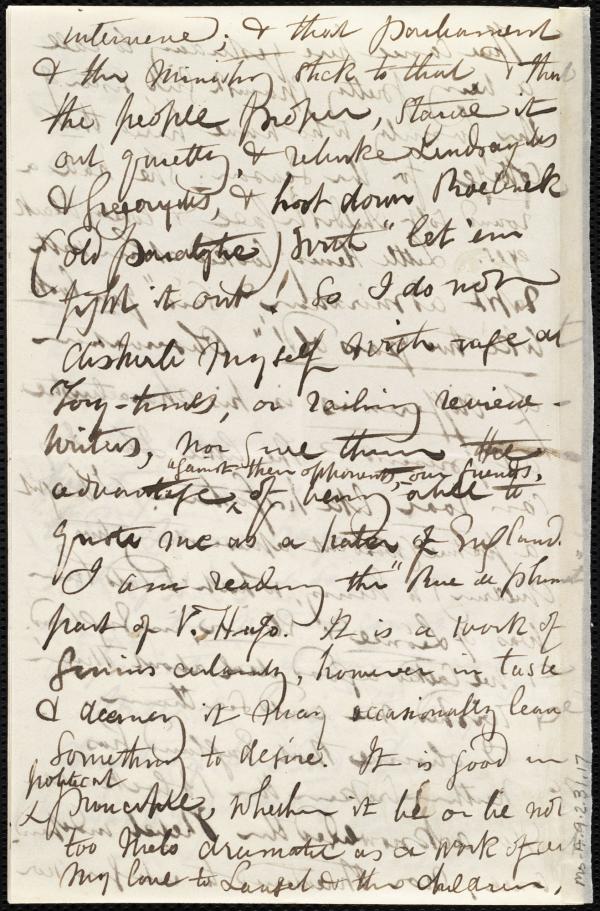 intervene; & that parliament
& the ministry stick to that & that
the people proper, starve it
out quietly, & rebuke Lindsayites
& Gregoryites, & hoot down Roebuck
(old paralytic) with "let 'em
fight it out"! So I do not
disturb myself with rage at
Tory-times, or railing review-
writers, nor give them the
"against their opponents, our friends,
advantage, of being able to
quote me as a hater of England.
I am reading the "Rue de plumet"
part of V. Hugo. It is a work of
Genius certainly, however in taste
& decency it may occasionally leave
something to desire. It is good in
political
principle, whether it be or be not
too melo dramatic as a work of art
My love to Laugel & the children,
Ms.A.9.2.31.17